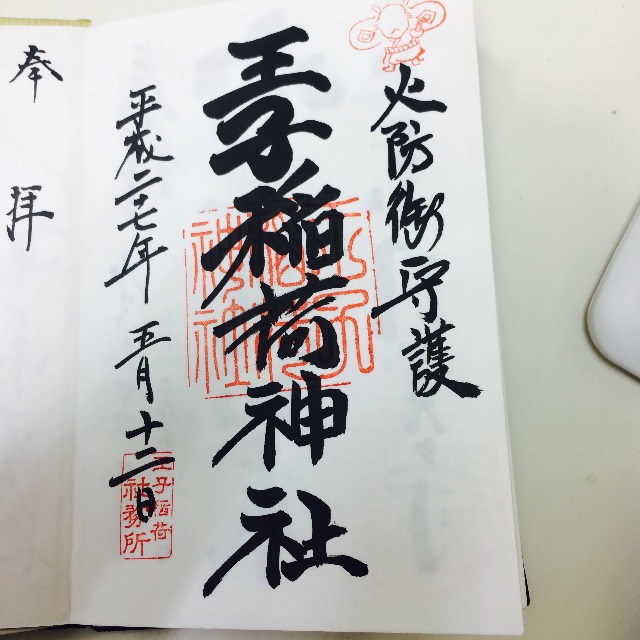 火防御守護
王子稲荷神社
平成二十七年 五月十二日
王子稲荷
社務所
奉拝